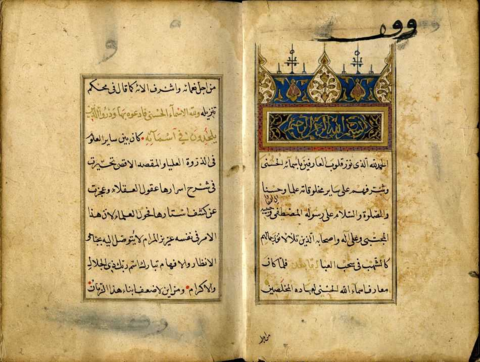 وقف
بسم الله الرحمن الرحيم
الحمد لله الذي نور قلوب العارفين باسمائه الحسنى
وشرفهم على ساير مخلوقاته علما وحسنا
والصلوة والسلام على رسوله المصطفى
المجتبى وعلى آله واصحابه الذين
كالشهب في سحب فلما كان
معارف اسماء الله الحسنى لعباده المخلصين
من اجل نعمائه واشرف الائه كما قال في محكم
تنزيله ولله الاسماء الحسنى فادعوه بها وذروا الذين
يلحدون في اسمائه كان بين ساير العلوم
في الذروة العليا والمقصد الاقصى تحيرت
في شرح اسرارها عقول العقلاء وعجزت
عن كشف استارها فحول العلماء لان هذا
الامر في نفسه عزيز المرام لا يتوصل الى
الانظار والافهام تبارك اسم ربك ذي الجلال
والاكرام ومن اين لاضعف ابناء هذا الزمان